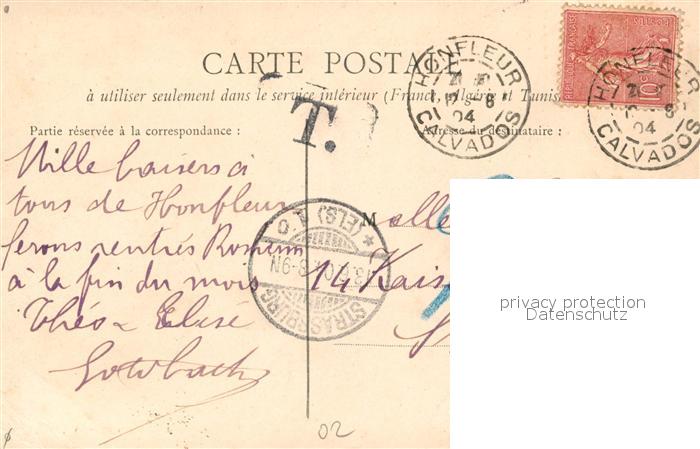 CARTE POSTALE
à utiliser seulement dans le service intérieur (France, Algérie et Tunis
Partie réservée à la correspondance :
Adresse du destinataire :
T.
HONFLEUR
04
CALVADOS
HONFLEUR
04
CALVADOS
RÉPUBLIQUE FRANÇAISE
POSTES
10c
Mille baisers à
tous de Honfleur
serons rentrés
à la fin du mois
Théo & Elise
STRASSBURG (ELS)
M elle
14 Kais
privacy protection
Datenschutz
02